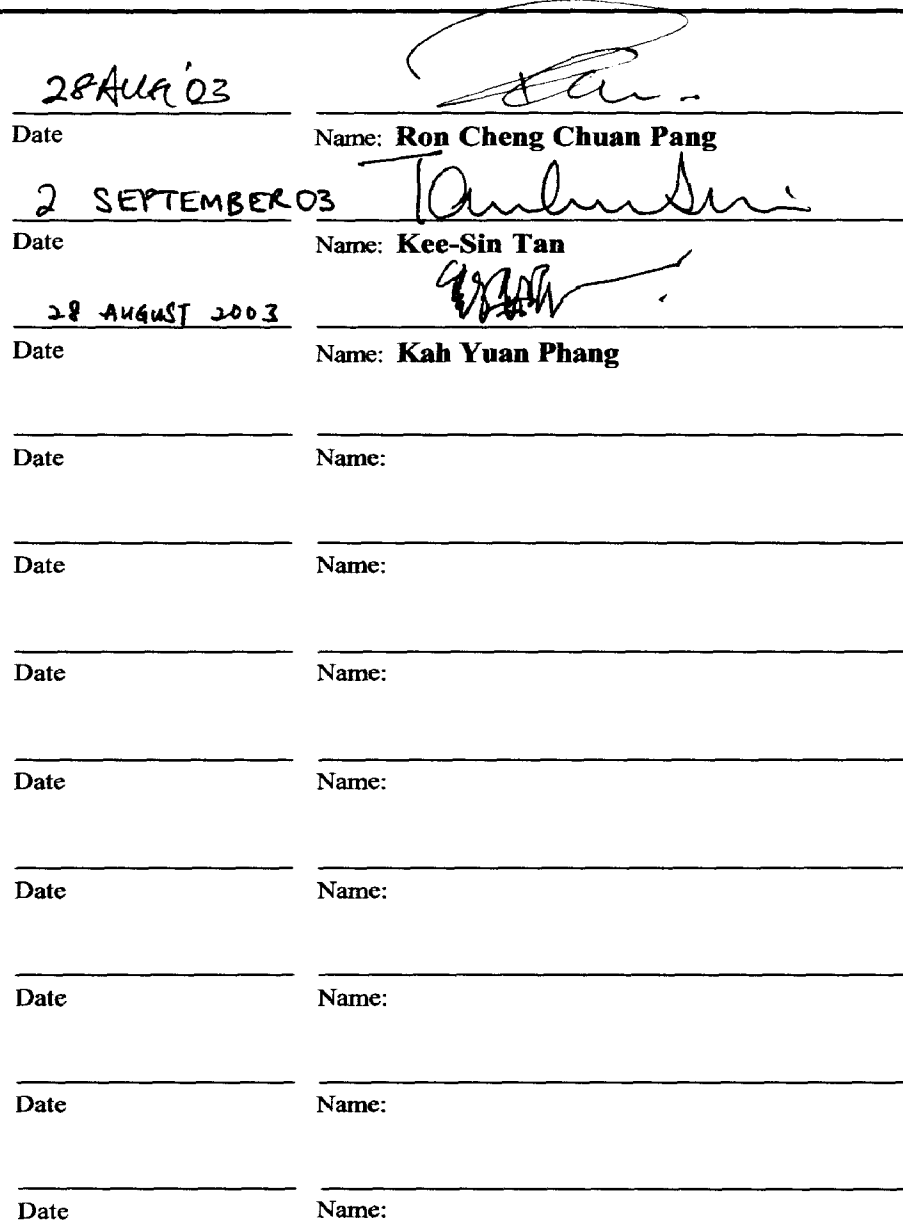 28 AUG '03
Date Name: Ron Cheng Chuan Pang
2 SEPTEMBER 03
Date Name: Kee-Sin Tan
28 AUGUST 2003
Date Name: Kah Yuan Phang
Date Name:
Date Name:
Date Name:
Date Name:
Date Name:
Date Name:
Date Name:
Date Name: